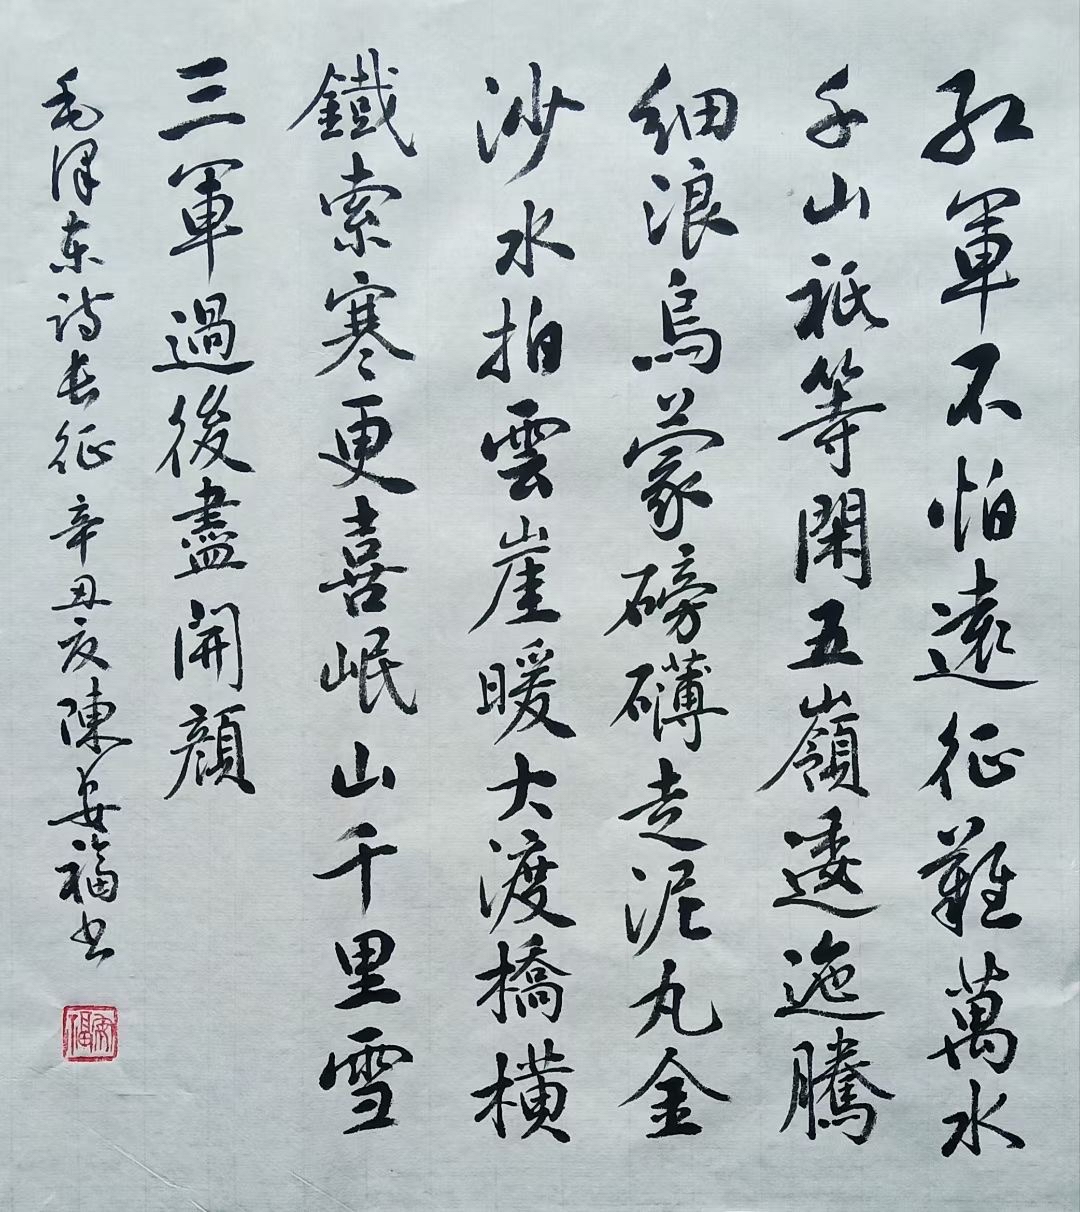 红軍不怕遠征難萬水
千山祇等閑五嶺逶迤騰
細浪烏蒙磅礴走泥丸金
沙水拍雲崖暖大渡橋横
鐵索寒更喜岷山千里雪
三軍過後盡開顔
毛泽东诗长征辛丑夏陳安福书
安福